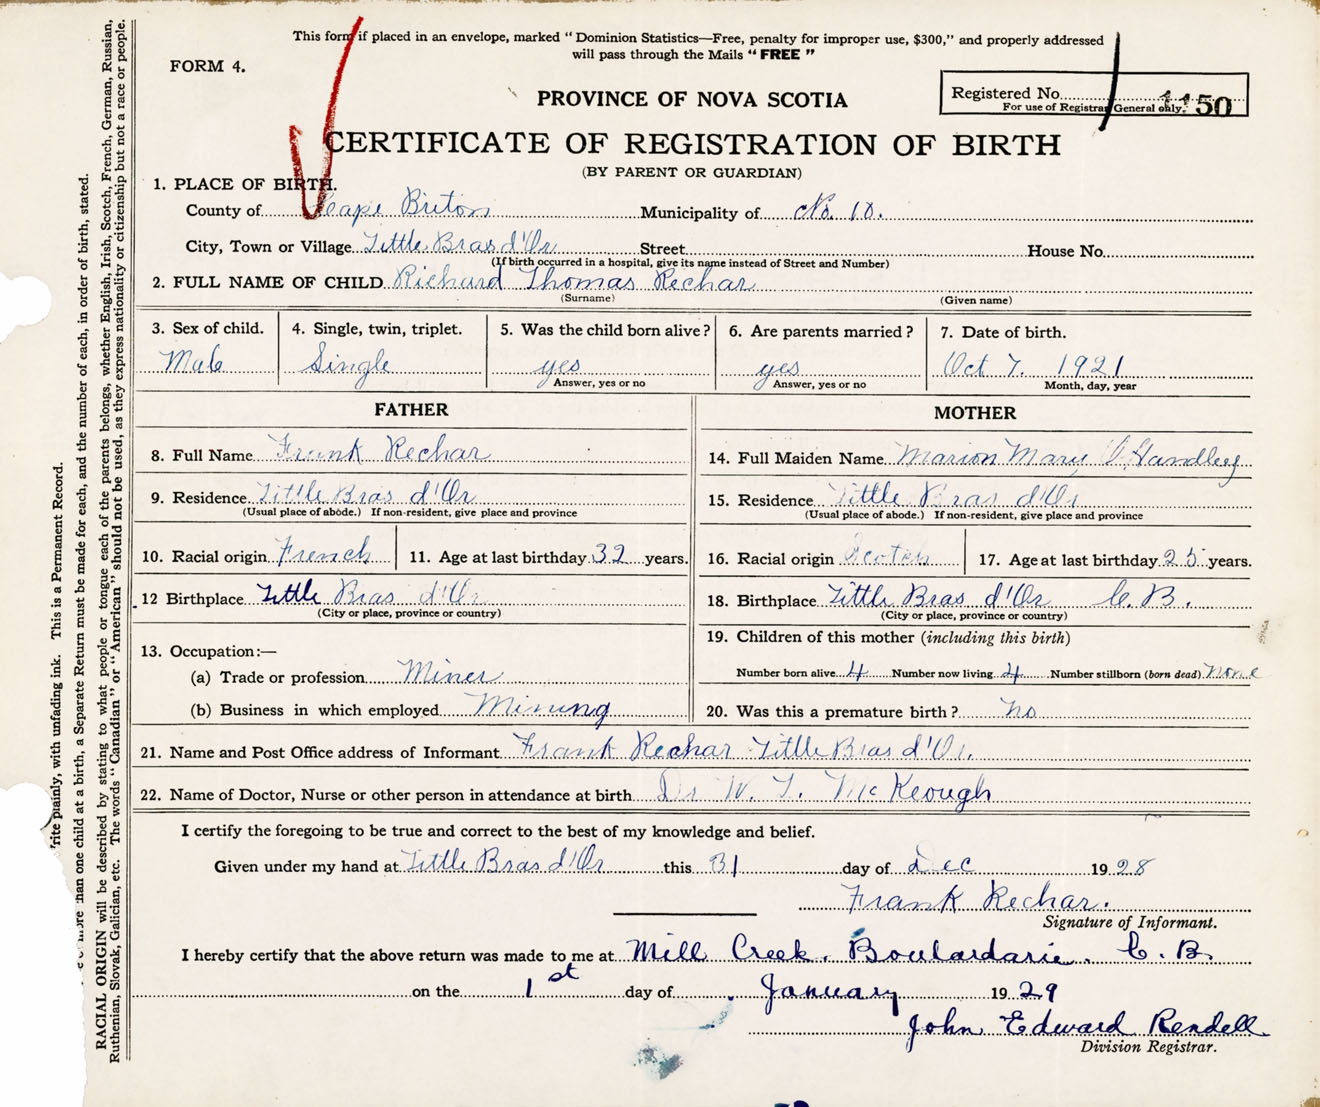 This form if placed in an envelope, marked “Dominion Statistics—Free, penalty for improper use, $300,” and properly addressed
will pass through the Mails “FREE”
FORM 4.
Registered No. 1150
For use of Registrar General only.
PROVINCE OF NOVA SCOTIA
CERTIFICATE OF REGISTRATION OF BIRTH
(BY PARENT OR GUARDIAN)
1. PLACE OF BIRTH.
County of Cape Briton Municipality of No. 10.
City, Town or Village Little Bras d'Or Street House No.
(If birth occurred in a hospital, give its name instead of Street and Number)
2. FULL NAME OF CHILD Richard Thomas Rechar
(Surname) (Given name)
3. Sex of child. 4. Single, twin, triplet. 5. Was the child born alive? 6. Are parents married? 7. Date of birth.
Male Single yes yes Oct 7. 1921
Answer, yes or no Answer, yes or no Month, day, year
FATHER
8. Full Name Frank Rechar
9. Residence Little Bras d'Or
(Usual place of abode.) If non-resident, give place and province
10. Racial origin French 11. Age at last birthday 32 years.
12 Birthplace Little Bras d'Or
(City or place, province or country)
13. Occupation:—
(a) Trade or profession Miner
(b) Business in which employed Mining
MOTHER
14. Full Maiden Name Marion Mary O'Handley
15. Residence Little Bras d'Or
(Usual place of abode.) If non-resident, give place and province
16. Racial origin Scotch 17. Age at last birthday 25 years.
18. Birthplace Little Bras d'Or C.B.
(City or place, province or country)
19. Children of this mother (including this birth)
Number born alive 4 Number now living 4 Number stillborn (born dead) none
20. Was this a premature birth? no
21. Name and Post Office address of Informant Frank Rechar Little Bras d'Or.
22. Name of Doctor, Nurse or other person in attendance at birth Dr W. L. McKeough
I certify the foregoing to be true and correct to the best of my knowledge and belief.
Given under my hand at Little Bras d'Or this 31 day of Dec 1928
Frank Rechar.
Signature of Informant.
I hereby certify that the above return was made to me at Mill Creek, Boulardarie. C.B.
on the 1st day of January 1929
John Edward Rendell
Division Registrar.
rite plainly, with unfading ink. This is a Permanent Record.
more than one child at a birth, a Separate Return must be made for each, and the number of each, in order of birth, stated.
RACIAL ORIGIN will be described by stating to what people or tongue each of the parents belongs, whether English, Irish, Scotch, French, German, Russian,
Ruthenian, Slovak, Galician, etc. The words “Canadian” or “American” should not be used, as they express nationality or citizenship but not a race or people.